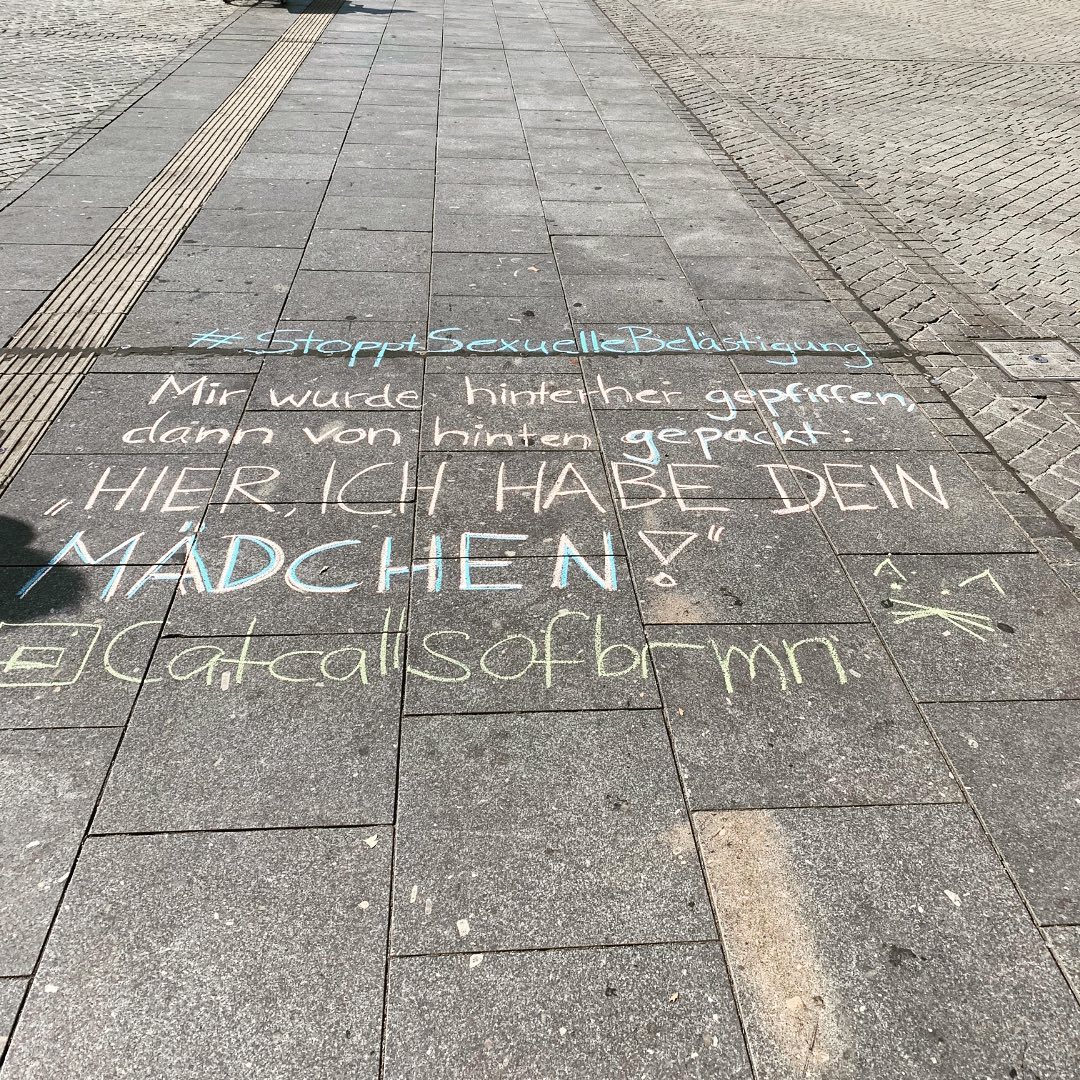 #StopptSexuelleBelästigung
Mir wurde hinterher gepfiffen,
dann von hinten gepackt:
„HIER, ICH HABE DEIN
MÄDCHEN!“
Catcallsofbrmn